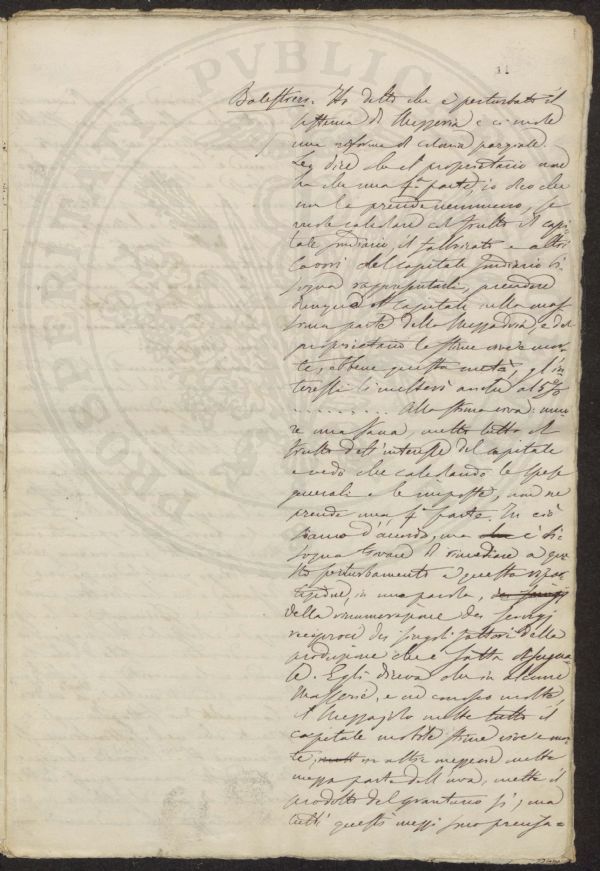 31
Balestreri. Ho detto che è perturbato il
sistema di Mezzeria e ci vuole
una riforma di colonia parziale.
dire che il proprietario non
ha che una 4ª parte, io dico che
non la prende nemmeno, se
vuole calcolare col frutto il capi-
tale fondiario, il fabbricato e altri
lavori del capitale fondiario bi-
sogna prendere
dunque il capitale nella mas-
sima parte della Mezzadria è del
proprietario le stime vive e mor-
te, ebbene questa metà, gl'in-
teressi si metterà anche al 5%
......... alla stima viva: mu-
re una sana, metto tutto il
frutto dell'interesse del capitale
e vedo che calcolando le spese
generali e le imposte, non ne
prende una 4ª parte. In ciò
siamo d'accordo, ma che è bi-
sogna trovare di rimediare a que-
sto perturbamento e questa ripar-
tizione, in una parola,
della rimunerazione dei servigi
reciproci dei singoli fattori della
produzione che è fatta disegua-
le. Egli diceva che in alcune
Masserie, e ne conosco molte,
il Mezzajolo mette tutto il
capitale mobile stime vive e mor-
te, in altre mezzerie mette
mezza parte dell'uva, mette il
prodotto del granturco sì, ma
tutti questi mezzi sono